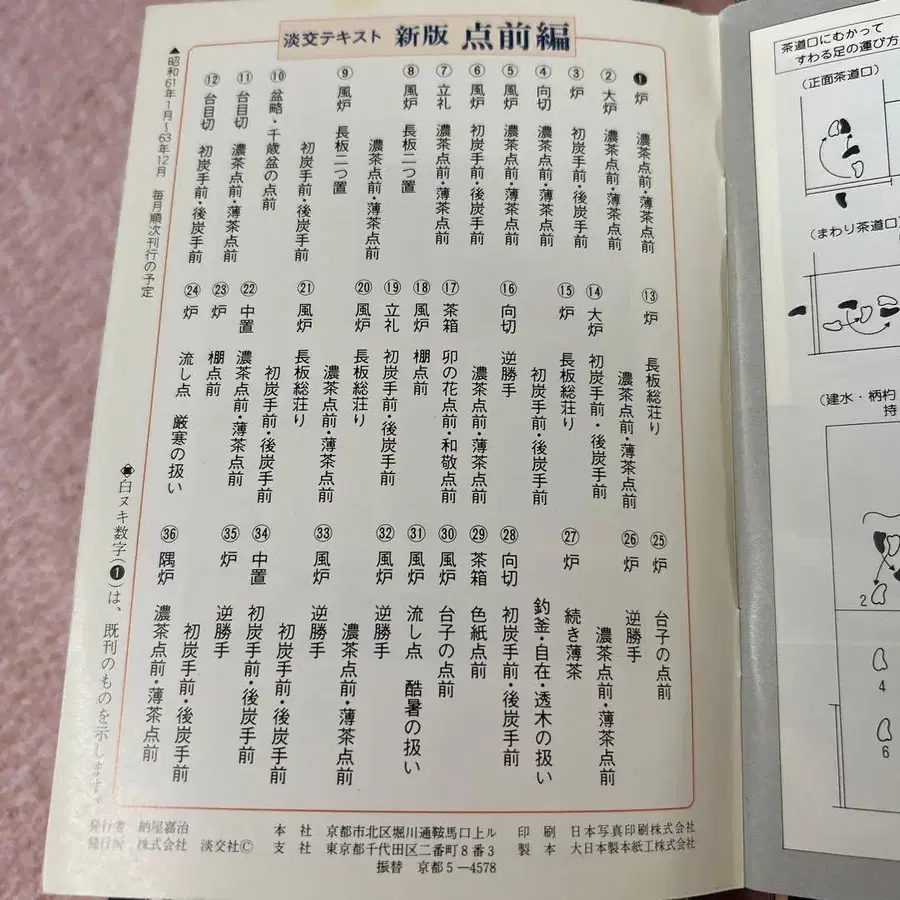 淡交テキスト 新版 点前編
❶ 炉 濃茶点前・薄茶点前
② 大炉 濃茶点前・薄茶点前
③ 炉 初炭手前・後炭手前
④ 向切 濃茶点前・薄茶点前
⑤ 風炉 濃茶点前・薄茶点前
⑥ 風炉 初炭手前・後炭手前
⑦ 立礼 濃茶点前・薄茶点前
⑧ 風炉 長板二つ置
濃茶点前・薄茶点前
⑨ 風炉 長板二つ置
初炭手前・後炭手前
⑩ 盆略・千歳盆の点前
⑪ 台目切 濃茶点前・薄茶点前
⑫ 台目切 初炭手前・後炭手前
⑬ 炉 長板総荘り
濃茶点前・薄茶点前
⑭ 大炉 初炭手前・後炭手前
⑮ 炉 長板総荘り
初炭手前・後炭手前
⑯ 向切 逆勝手
濃茶点前・薄茶点前
⑰ 茶箱 卯の花点前・和敬点前
⑱ 風炉 棚点前
⑲ 立礼 初炭手前・後炭手前
⑳ 風炉 長板総荘り
濃茶点前・薄茶点前
㉑ 風炉 長板総荘り
初炭手前・後炭手前
㉒ 中置 濃茶点前・薄茶点前
㉓ 炉 棚点前
㉔ 炉 流し点 厳寒の扱い
㉕ 炉 台子の点前
㉖ 炉 逆勝手
濃茶点前・薄茶点前
㉗ 炉 続き薄茶
釣釜・自在・透木の扱い
㉘ 向切 初炭手前・後炭手前
㉙ 茶箱 色紙点前
㉚ 風炉 台子の点前
㉛ 風炉 流し点 酷暑の扱い
㉜ 風炉 逆勝手
濃茶点前・薄茶点前
㉝ 風炉 逆勝手
初炭手前・後炭手前
㉞ 中置 初炭手前・後炭手前
㉟ 炉 逆勝手
初炭手前・後炭手前
㊱ 隅炉 濃茶点前・薄茶点前
▲昭和61年1月〜63年12月 毎月順次刊行の予定
白ヌキ数字(❶)は、既刊のものを示します。
発行者 納屋嘉治
発行所 株式会社 淡交社©
本社 京都市北区堀川通鞍馬口上ル
支社 東京都千代田区二番町8番3
振替 京都5—4578
印刷 日本写真印刷株式会社
製本 大日本製本紙工株式会社
茶道口にむかって
すわる足の運び方
(正面茶道口)
(まわり茶道口)
(建水・柄杓
持
2
4
6